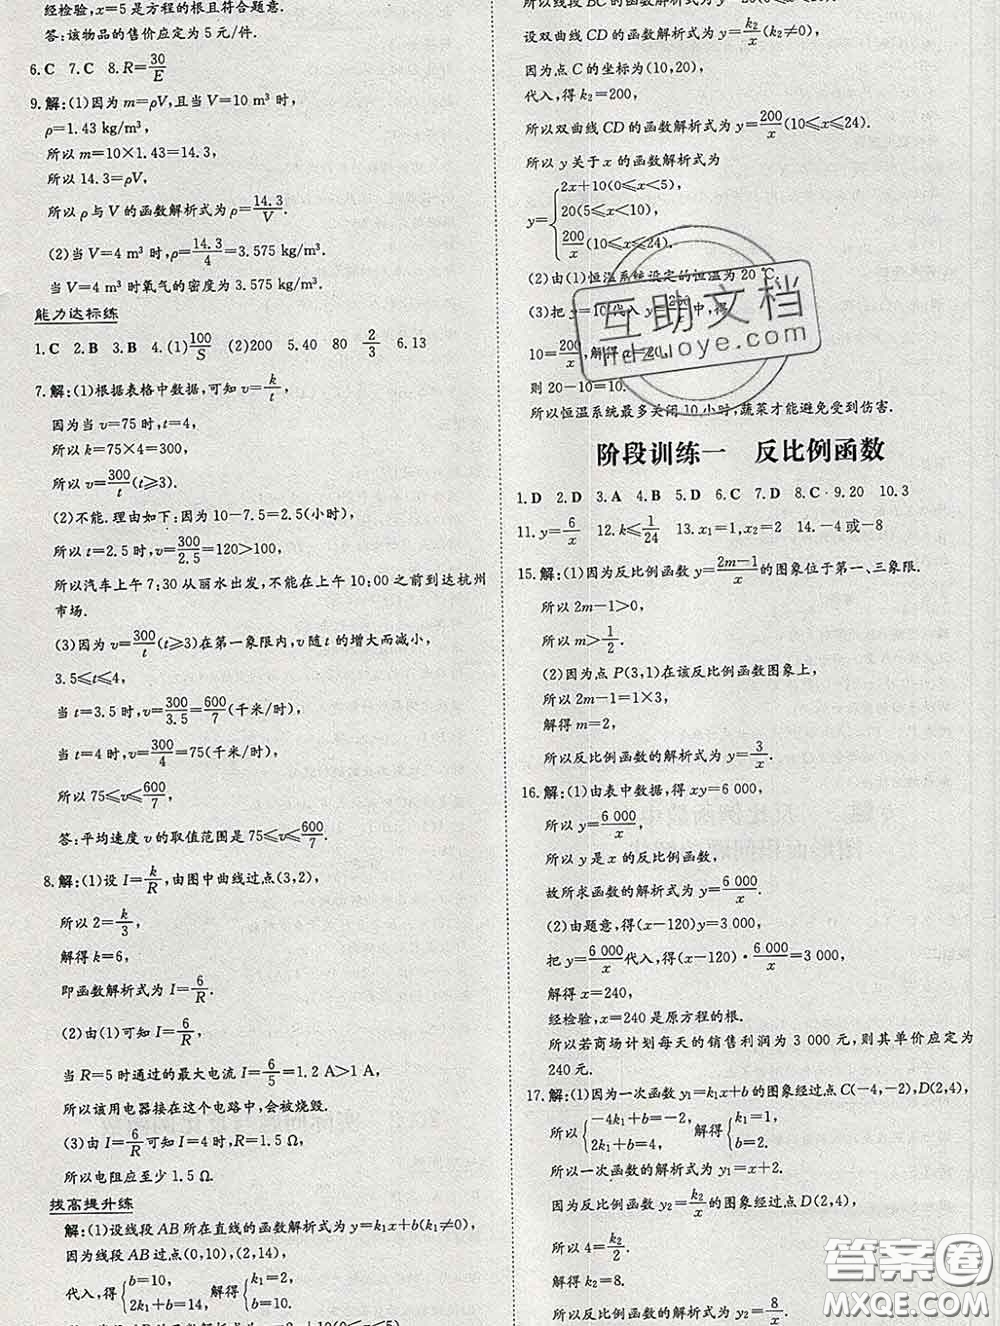 经检验,x=5是方程的根且符合题意.
答:该物品的售价应定为5元/件.
6.C 7.C 8.R=30/E
9.解:(1)因为m=ρV,且当V=10 m³时,
ρ=1.43 kg/m³,
所以m=10×1.43=14.3,
所以14.3=ρV,
所以ρ与V的函数解析式为ρ=14.3/V.
(2)当V=4 m³时,ρ=14.3/4=3.575 kg/m³,
当V=4 m³时氧气的密度为3.575 kg/m³.
能力达标练
1.C 2.B 3.B 4.(1)100/S (2)200 5.40 80 2/3 6.13
7.解:(1)根据表格中数据,可知v=k/t,
因为当v=75时,t=4,
所以k=75×4=300,
所以v=300/t(t≥3).
(2)不能.理由如下:因为10-7.5=2.5(小时),
所以t=2.5时,v=300/2.5=120>100,
所以汽车上午7:30从丽水出发,不能在上午10:00之前到达杭州
市场.
(3)因为v=300/t(t≥3)在第一象限内,v随t的增大而减小,
3.5≤t≤4,
当t=3.5时,v=300/3.5=600/7(千米/时),
当t=4时,v=300/4=75(千米/时),
所以75≤v≤600/7,
答:平均速度v的取值范围是75≤v≤600/7.
8.解:(1)设I=k/R,由图中曲线过点(3,2),
所以2=k/3,
解得k=6,
即函数解析式为I=6/R.
(2)由(1)可知I=6/R,
当R=5时通过的最大电流I=6/5=1.2 A>1 A,
所以该用电器接在这个电路中,会被烧毁.
(3)由1=6/R可知当I=1时,R=
所以电阻应至少1.5 Ω.
拔高提升练
解:(1)设线段AB所在直线的函数解析式为y=k₁x+b(k₁≠0),
因为线段AB过点(0,10),(2,14),
代入,得{b=10, 2k₁+b=14, 解得{k₁=2, b=10,
所以双曲线CD的函数解析式为
设双曲线CD的函数解析式为y=k₂/x(k₂≠0),
因为点C的坐标为(10,20),
代入,得k₂=200,
所以双曲线CD的函数解析式为y=200/x(10≤x≤24).
所以y关于x的函数解析式为
y={2x+10(0≤x<5),
20(5≤x<10),
200/x(10≤x≤24).
(2)由(1)恒温系统设定的恒温为20 ℃.
(3)把y=10代入y=200/x中,得
10=200/x,解得x=20,
则20-10=10.
所以恒温系统最多关闭10小时,蔬菜才能避免受到伤害.
互助文档
hdzuoye.com
阶段训练一 反比例函数
1.D 2.D 3.A 4.B 5.D 6.C 7.D 8.C 9.20 10.3
11.y=6/x 12.k≤1/24 13.x₁=1,x₂=2 14.-4或-8
15.解:(1)因为反比例函数y=2m-1/x的图象位于第一、三象限.
所以2m-1>0,
所以m>1/2.
(2)因为点P(3,1)在该反比例函数图象上,
所以2m-1=1×3,
解得m=2,
所以反比例函数的解析式为y=3/x.
16.解:(1)由表中数据,得xy=6 000,
所以y=6 000/x,
所以y是x的反比例函数,
故所求函数的解析式为y=6 000/x.
(2)由题意,得(x-120)y=3 000,
把y=6 000/x代入,得(x-120)·6 000/x=3 000,
解得x=240,
经检验,x=240是原方程的根.
所以若商场计划每天的销售利润为3 000元,则其单价应定为
240元.
17.解:(1)因为一次函数y₁=k₁x+b的图象经过点C(-4,-2),D(2,4),
所以{-4k₁+b=-2, 2k₁+b=4, 解得{k₁=1, b=2.
所以一次函数的解析式为y₁=x+2.
因为反比例函数y₂=k₂/x的图象经过点D(2,4),
所以4=k₂/2.
解得k₂=8.
所以反比例函数的解析式为y₂=8/x.
答案圈
MXQE.COM